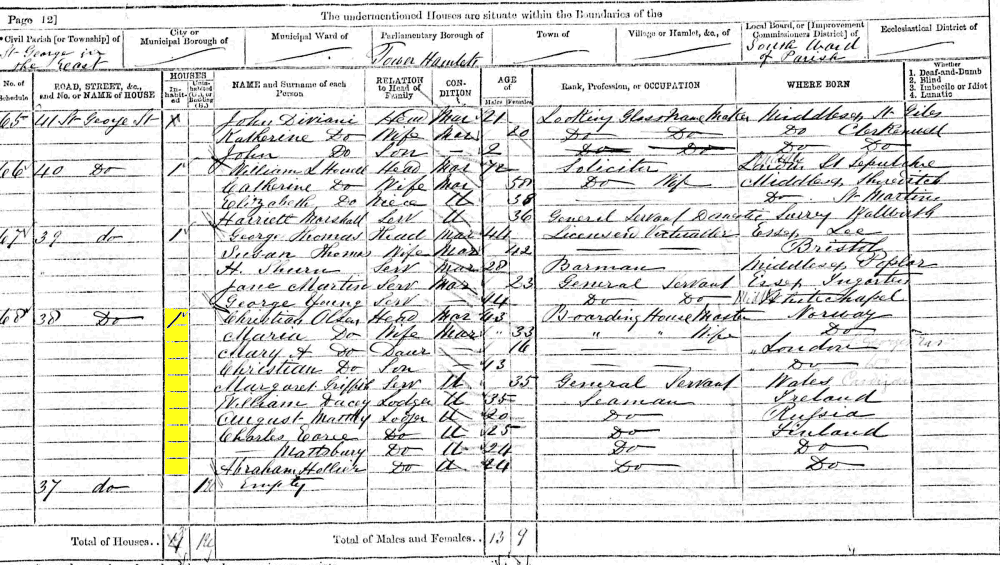 Page 12]
The undermentioned Houses are situate within the Boundaries of the
Civil Parish [or Township] of
St George in the East
City or Municipal Borough of
Municipal Ward of
Parliamentary Borough of
Tower Hamlets
Town of
Village or Hamlet, &c., of
Local Board, or [Improvement Commissioners District] of
South Ward of Parish
Ecclesiastical District of
No. of Schedule
ROAD, STREET, &c., and No. or NAME of HOUSE
HOUSES
Inhabited
NAME and Surname of each Person
RELATION to Head of Family
CONDITION
AGE
Males Females
Rank, Profession, or OCCUPATION
WHERE BORN
Whether
1. Deaf-and-Dumb
2. Blind
3. Imbecile or Idiot
4. Lunatic
65 41 St George St John Diviani Head Mar 21 Looking Glass Frame Maker Middlesex St Giles
Katherine Do Wife Mar 20 Do Do Do Clerkenwell
John Do Son — 2 Do Do Do Do
66 40 Do 1 William S Howell Head Mar 72 Solicitor London St Sepulchre
Catherine Do Wife Mar 58 Do Wife Middlesex Shoreditch
Elizabeth Do Niece U 38 Do St Martins
Harriett Marshall Serv U 36 General Servant Domestic Surrey Walworth
67 39 do 1 George Thomas Head Mar 44 Licensed Victualler Essex Lee
Susan Thomas Wife Mar 42 — Bristol
H. Sburn Serv Mar 28 Barman Middlesex Poplar
Jane Martin Serv Mar 23 General Servant Essex
George Young Serv — 14 Do Do Whitechapel
68 38 Do 1 Christian Olsen Head Mar 43 Boarding House Master Norway
Maria Do Wife Mar 33 " " Wife Do
Mary A Do Daur — 16 — London
Christian Do Son — 13 — Do
Margaret Serv U 35 General Servant Wales
William Dacey Lodger U 35 Seaman Ireland
August Lodger U 20 Do Russia
Charles Do U 25 Do Finland
— Mattsbury Do U 24 Do Do
Abraham Do U 24 Do Do
37 do Empty
Total of Houses..
Total of Males and Females.. 13 9